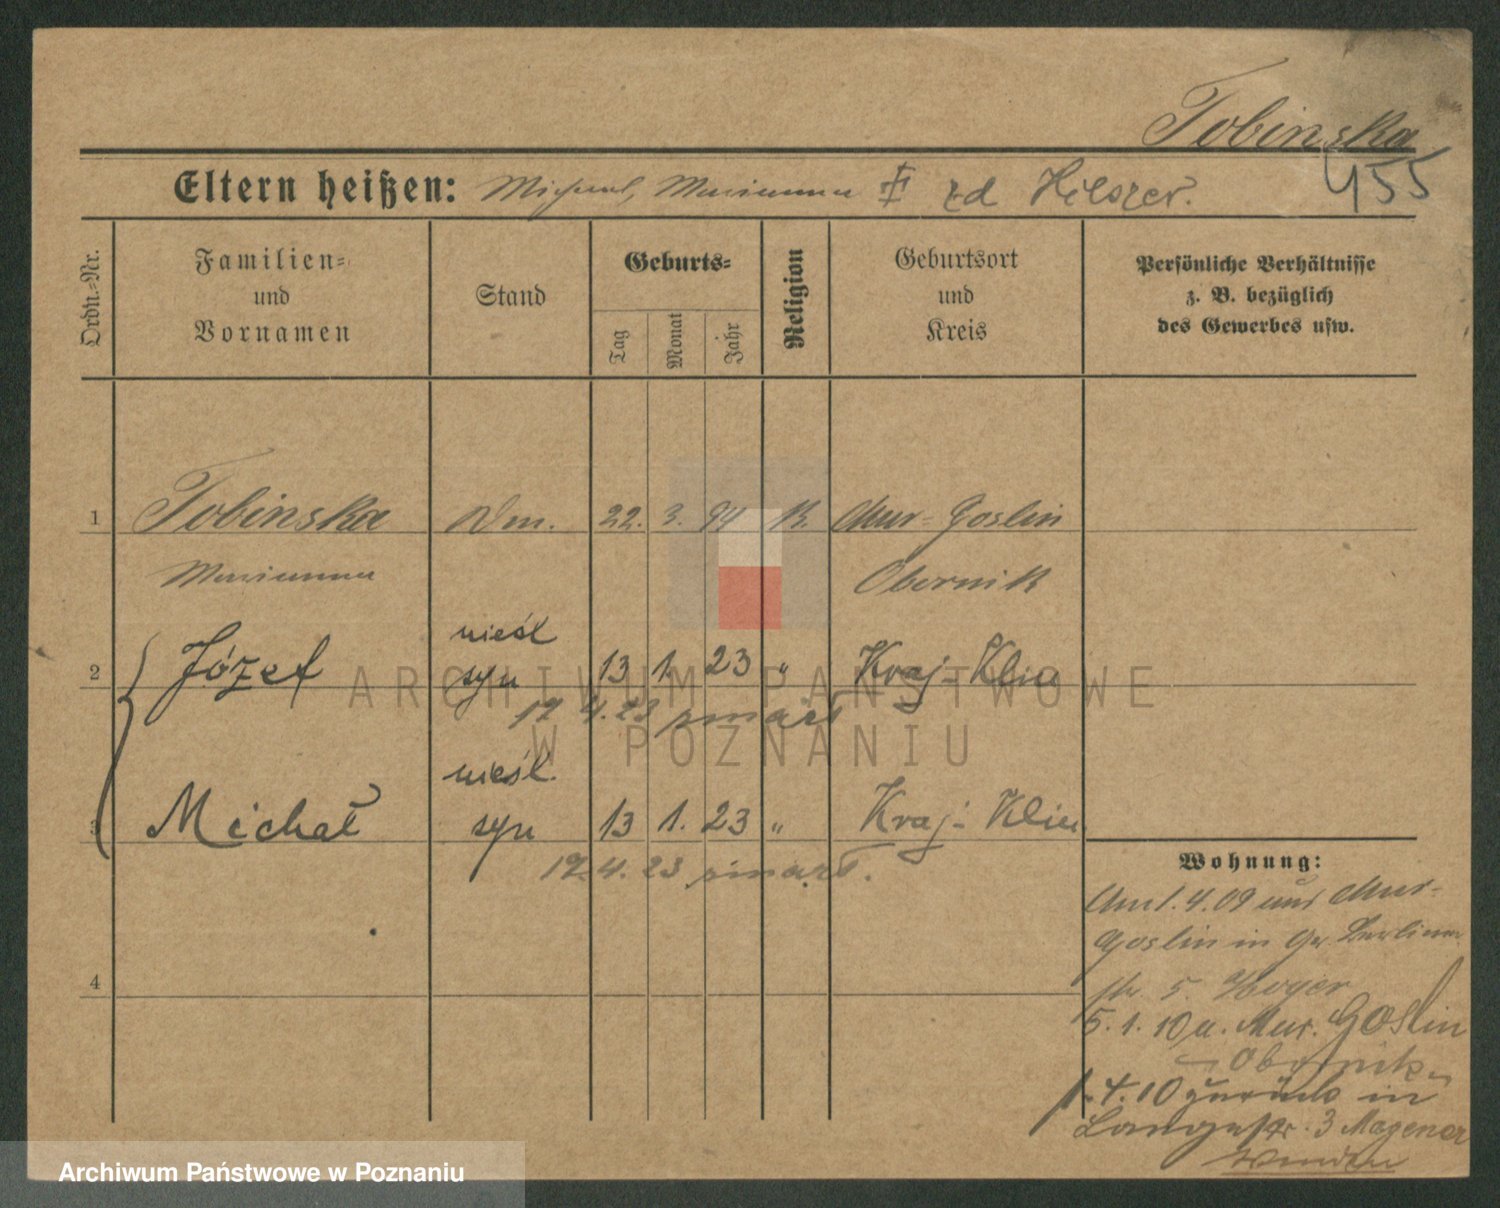 Tobinska
455
Eltern heißen: Michael, Marianna zd Hilszer.
Ordn.-Nr.
Familien-
und
Vornamen
Stand
Geburts-
Tag
Monat
Jahr
Religion
Geburtsort
und
Kreis
Persönliche Verhältnisse
z. B. bezüglich
des Gewerbes usw.
1 Tobinska Dm. 22. 3. 94 K. Mur-Goslin
Marianna Obornik
nieśl
2 Józef syn 13 1. 23 „ Kraj-
17 4. 23 zmarł
nieśl.
3 Michał syn 13 1. 23 „ Kraj-
17. 4. 23 zmarł.
4
Wohnung:
Am 1. 4. 09 aus Mur-
Goslin in Gr. Berliner
str. 5. Hoyer
5. 1. 10 n. Mur. Goslin
Obornik
1. 4. 10 zurück in
Langestr. 3
ARCHIWUM PAŃSTWOWE
W POZNANIU
Archiwum Państwowe w Poznaniu